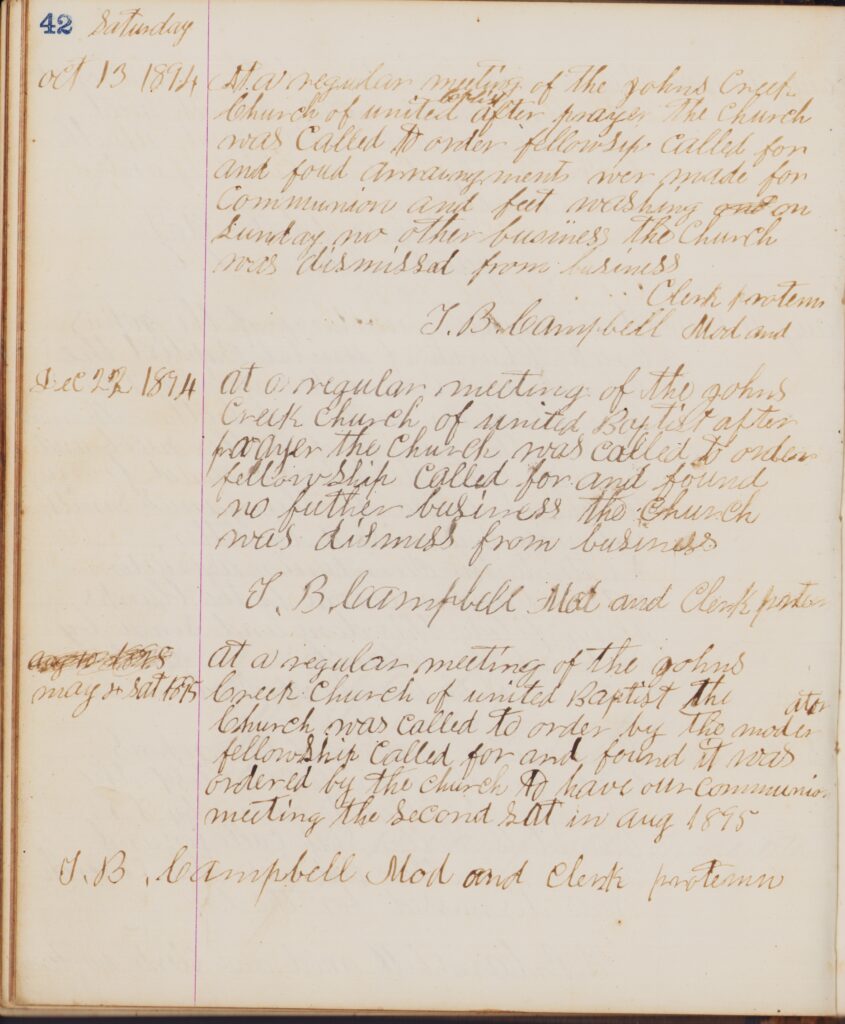 42 Saturday
oct 13 1894 At a regular meeting of the Johns Creek
Church of united baptis after prayer the Church
was Called to order fellowsip called for
and foud arraingments wer made for
Communion and feet washing and on
Sunday no other business the Church
was dismissal from business
Clerk protem
T. B. Campbell Mod and
Dec 22 1894 at a regular meeting of the Johns
Creek Church of united Baptist after
prayer the Church was called to order
fellowship called for and found
no futher business the Church
was dismiss from business
T. B. Campbell Mod and Clerk protem
aug 10 1895 at a regular meeting of the Johns
may Sat 1895 Creek Church of united Baptist the
Church was called to order by the moderator
fellowship called for and found it was
ordered by the church to have our communion
meeting the second Sat in aug 1895
T. B. Campbell Mod and Clerk protemn